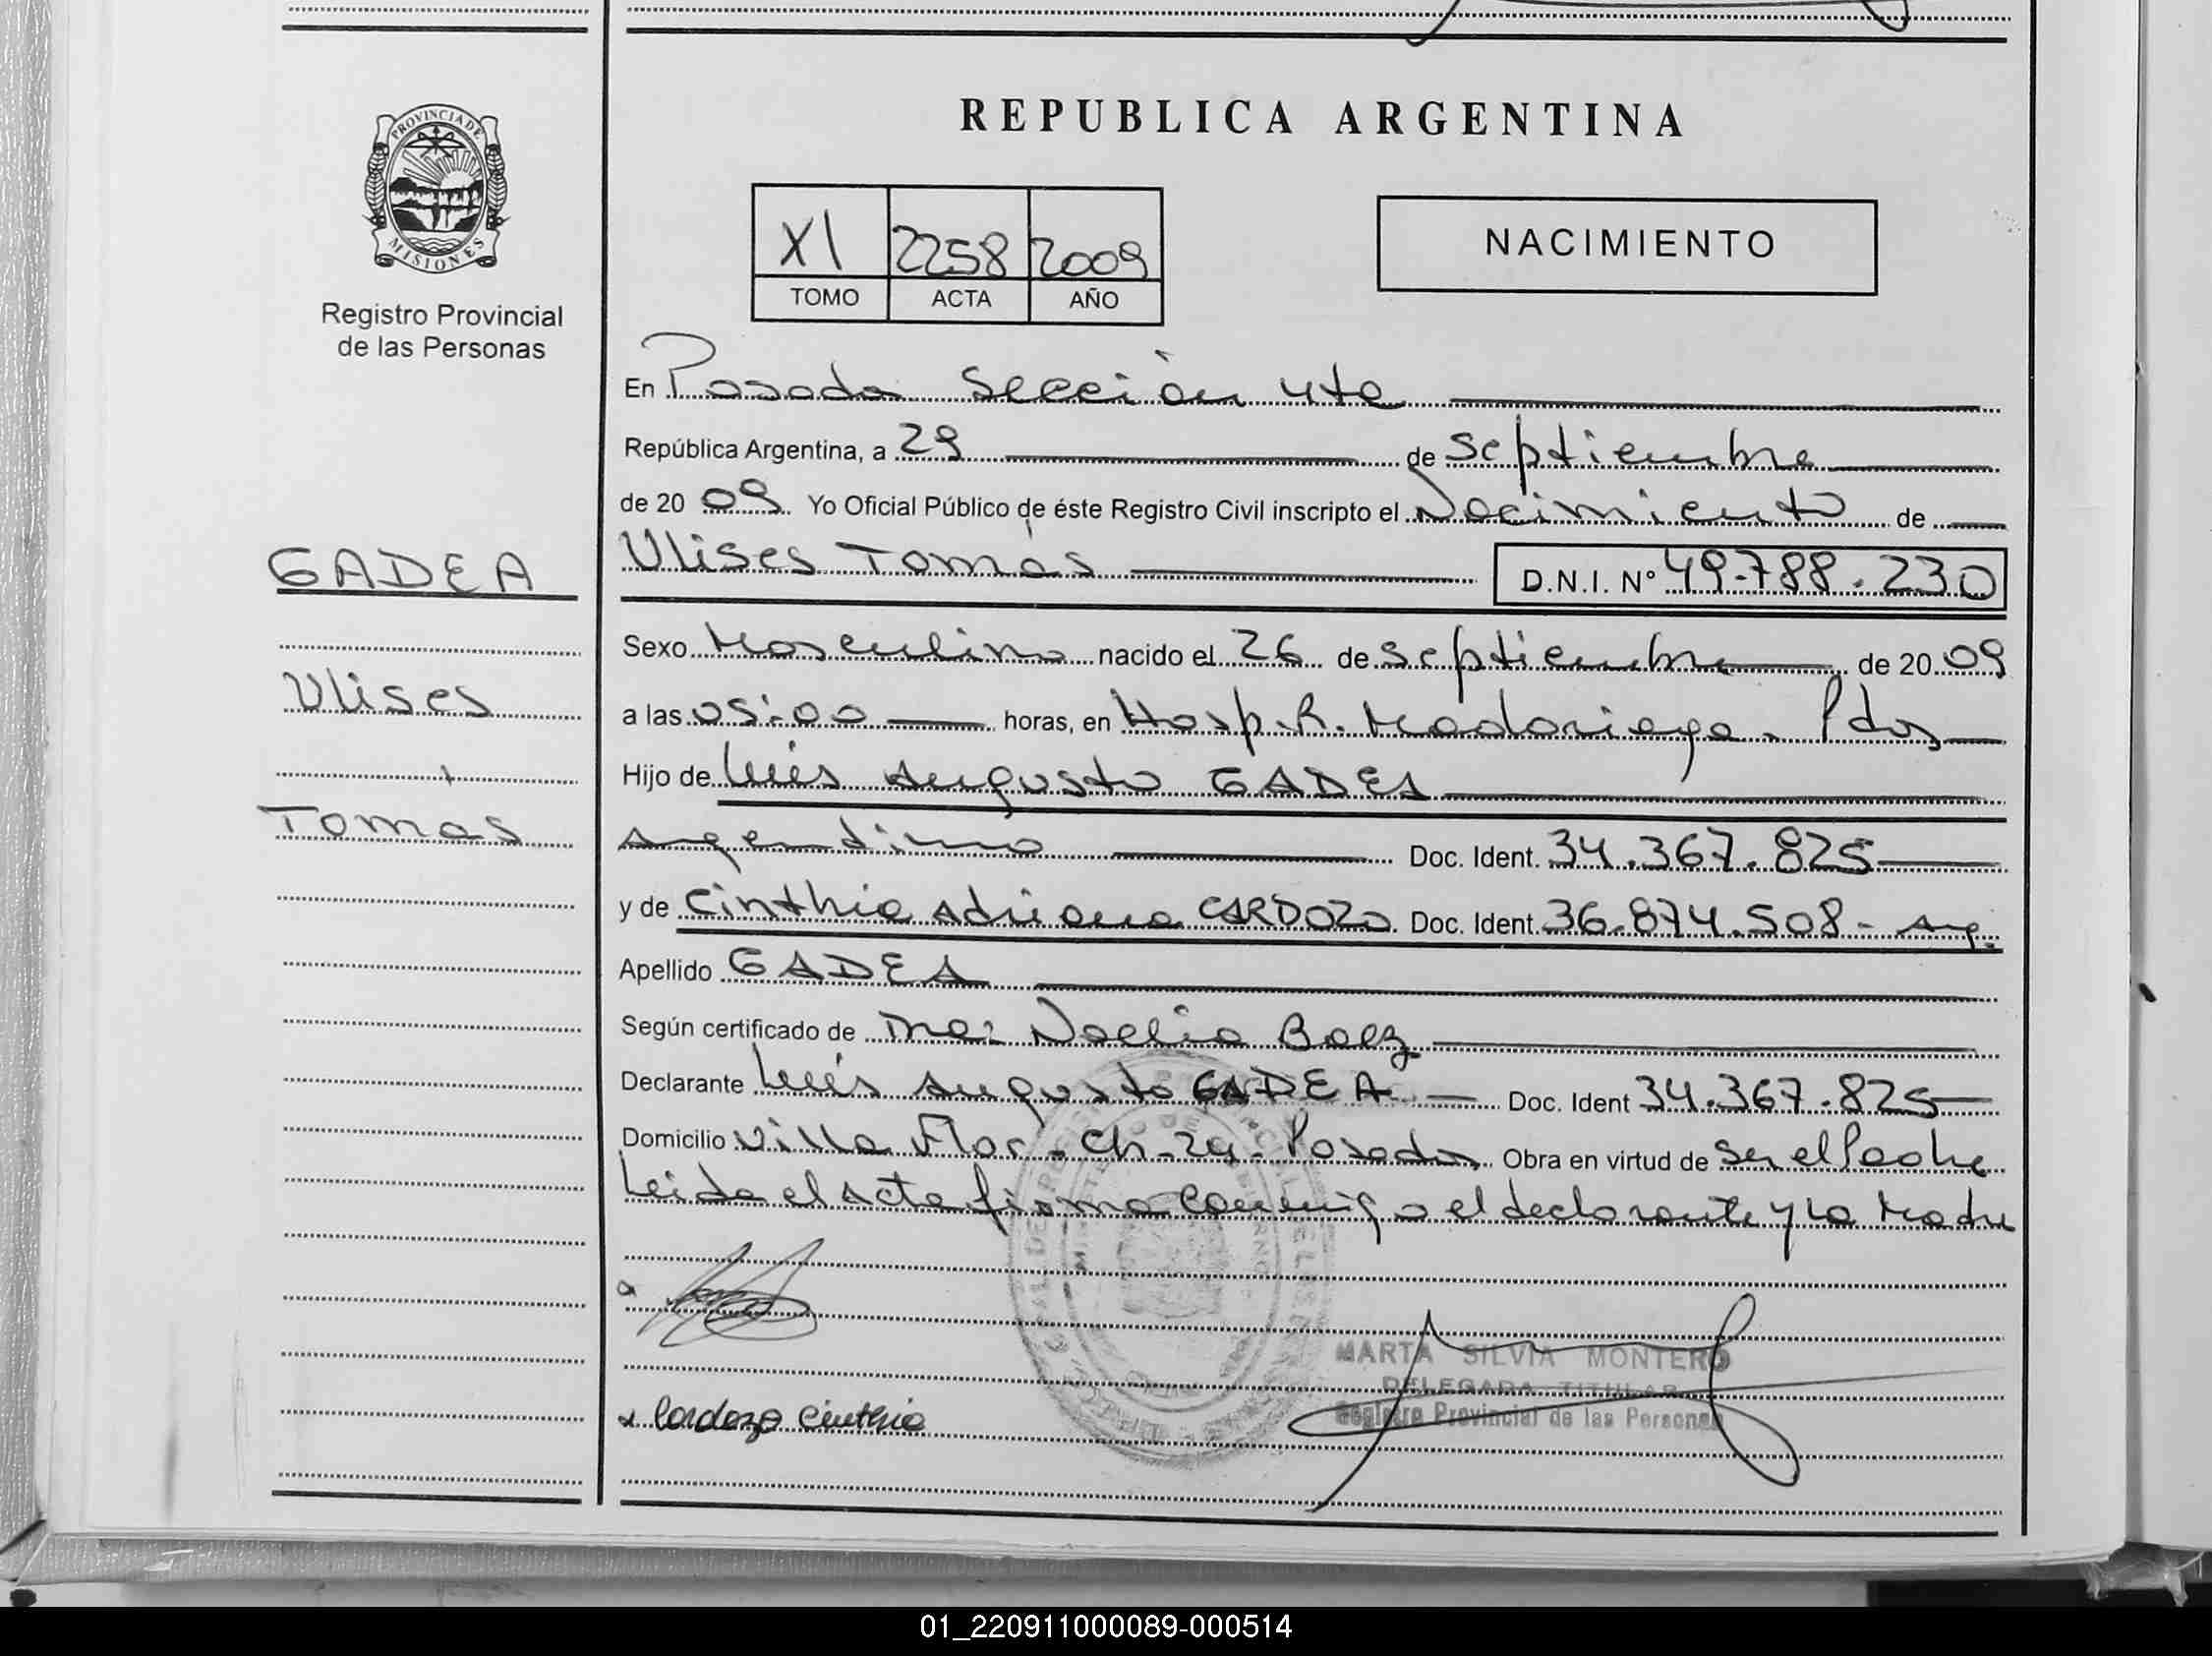 PROVINCIA DE
MISIONES
Registro Provincial
de las Personas
REPUBLICA ARGENTINA
XI 2258 2009
TOMO ACTA AÑO
NACIMIENTO
En Posadas Sección 4ta
República Argentina, a 29 de Septiembre
de 20 09 Yo Oficial Público de éste Registro Civil inscripto el Nacimiento de
Ulises Tomás D.N.I. Nº 49.788.230
GADEA
Ulises
Tomás
Sexo Masculino nacido el 26 de Septiembre de 20 09
a las 05:00 horas, en Hosp. R. Madariaga. Pdas
Hijo de Luis Augusto GADEA
Argentino Doc. Ident. 34.367.825
y de Cinthia Adriana CARDOZO Doc. Ident. 36.874.508 - Arg.
Apellido GADEA
Según certificado de Noelia Baez
Declarante Luis Augusto GADEA Doc. Ident 34.367.825
Domicilio Villa Flor. Ch. 29. Posadas Obra en virtud de Ser el Padre
Leída el acta firma conmigo el declarante y la Madre
MARTA SILVIA MONTERO
DELEGADA TITULAR
Registro Provincial de las Personas
Cardozo Cinthia
01_220911000089-000514